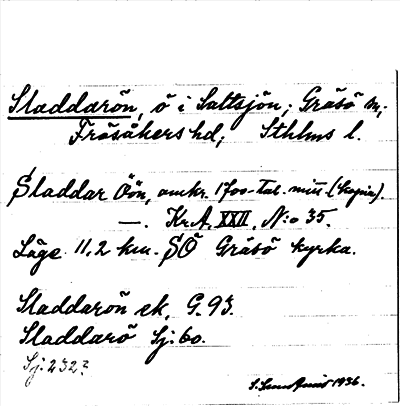 Sladdarön, ö i Saltsjön; Gräsö sn;
Frösåkers hd; Sthlms l.
Sladdar Öön, omkr. 1700-Tal. mitt. (kopia).
—. Kr.A. XXII. N:o 35.
Läge 11,2 km. SÖ Gräsö kyrka.
Sladdarön ek. G. 93.
Sladdarö Sj: 60.
Sj: 2323
1936.